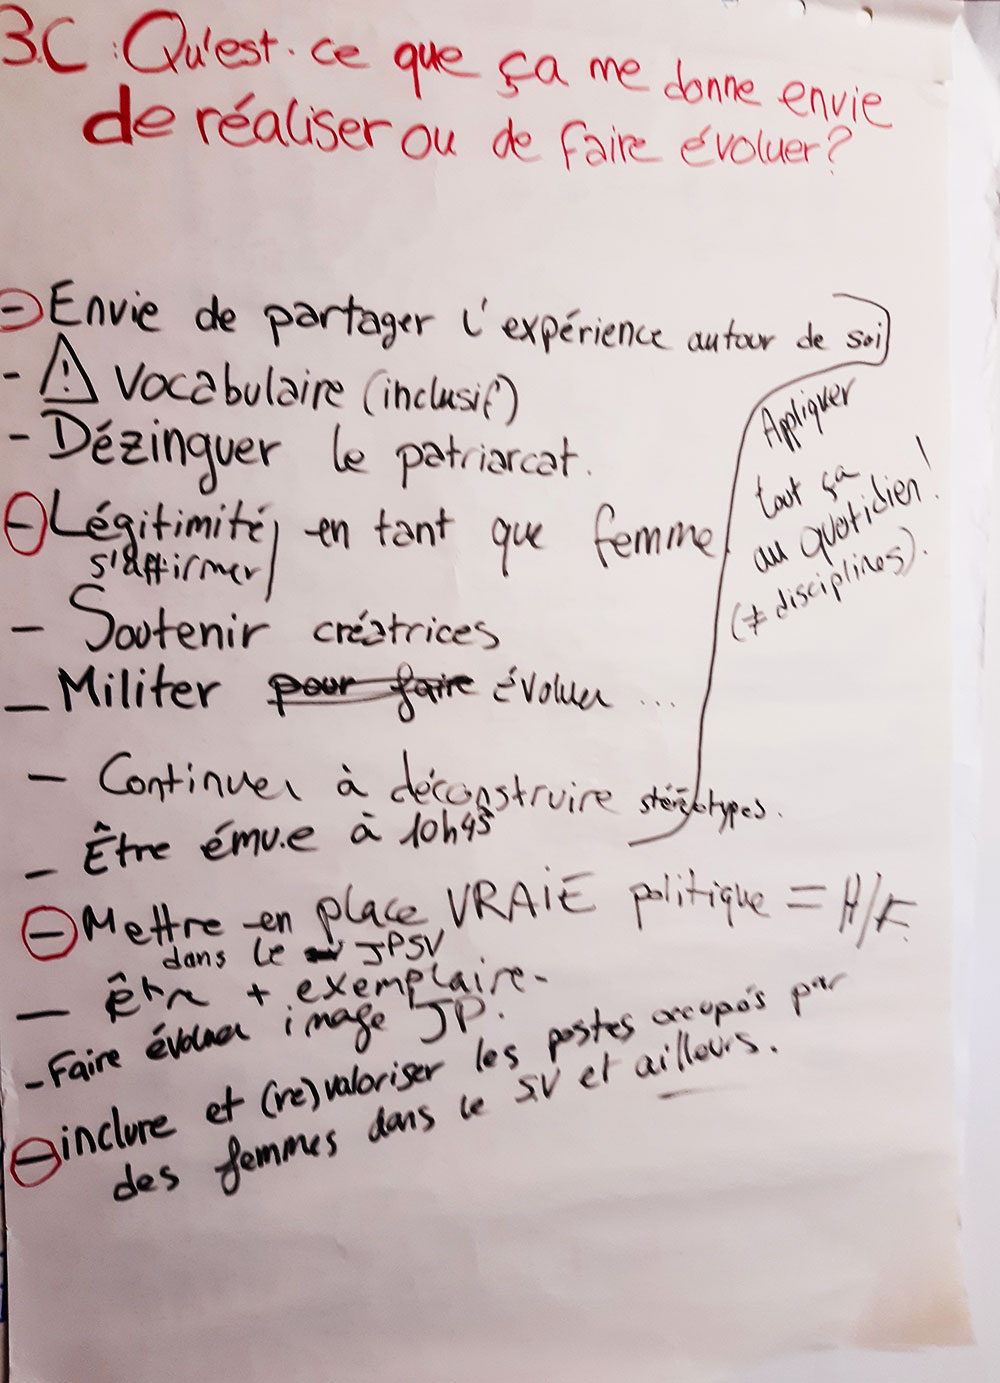 3C : Qu'est-ce que ça me donne envie
de réaliser ou de faire évoluer ?
- Envie de partager l'expérience autour de soi
- ⚠ Vocabulaire (inclusif)
- Dézinguer le patriarcat.
- Légitimité / en tant que femme
s'affirmer
- Soutenir créatrices
- Militer pour faire évoluer ...
- Continuer à déconstruire stéréotypes.
- Être ému.e à 10h45
- Mettre en place VRAIE politique = H/F
dans le JPSV
- être + exemplaire
- Faire évoluer image JP.
- inclure et (re)valoriser les postes occupés par
des femmes dans le SV et ailleurs.
Appliquer
tout ça
au quotidien !
(≠ disciplines).